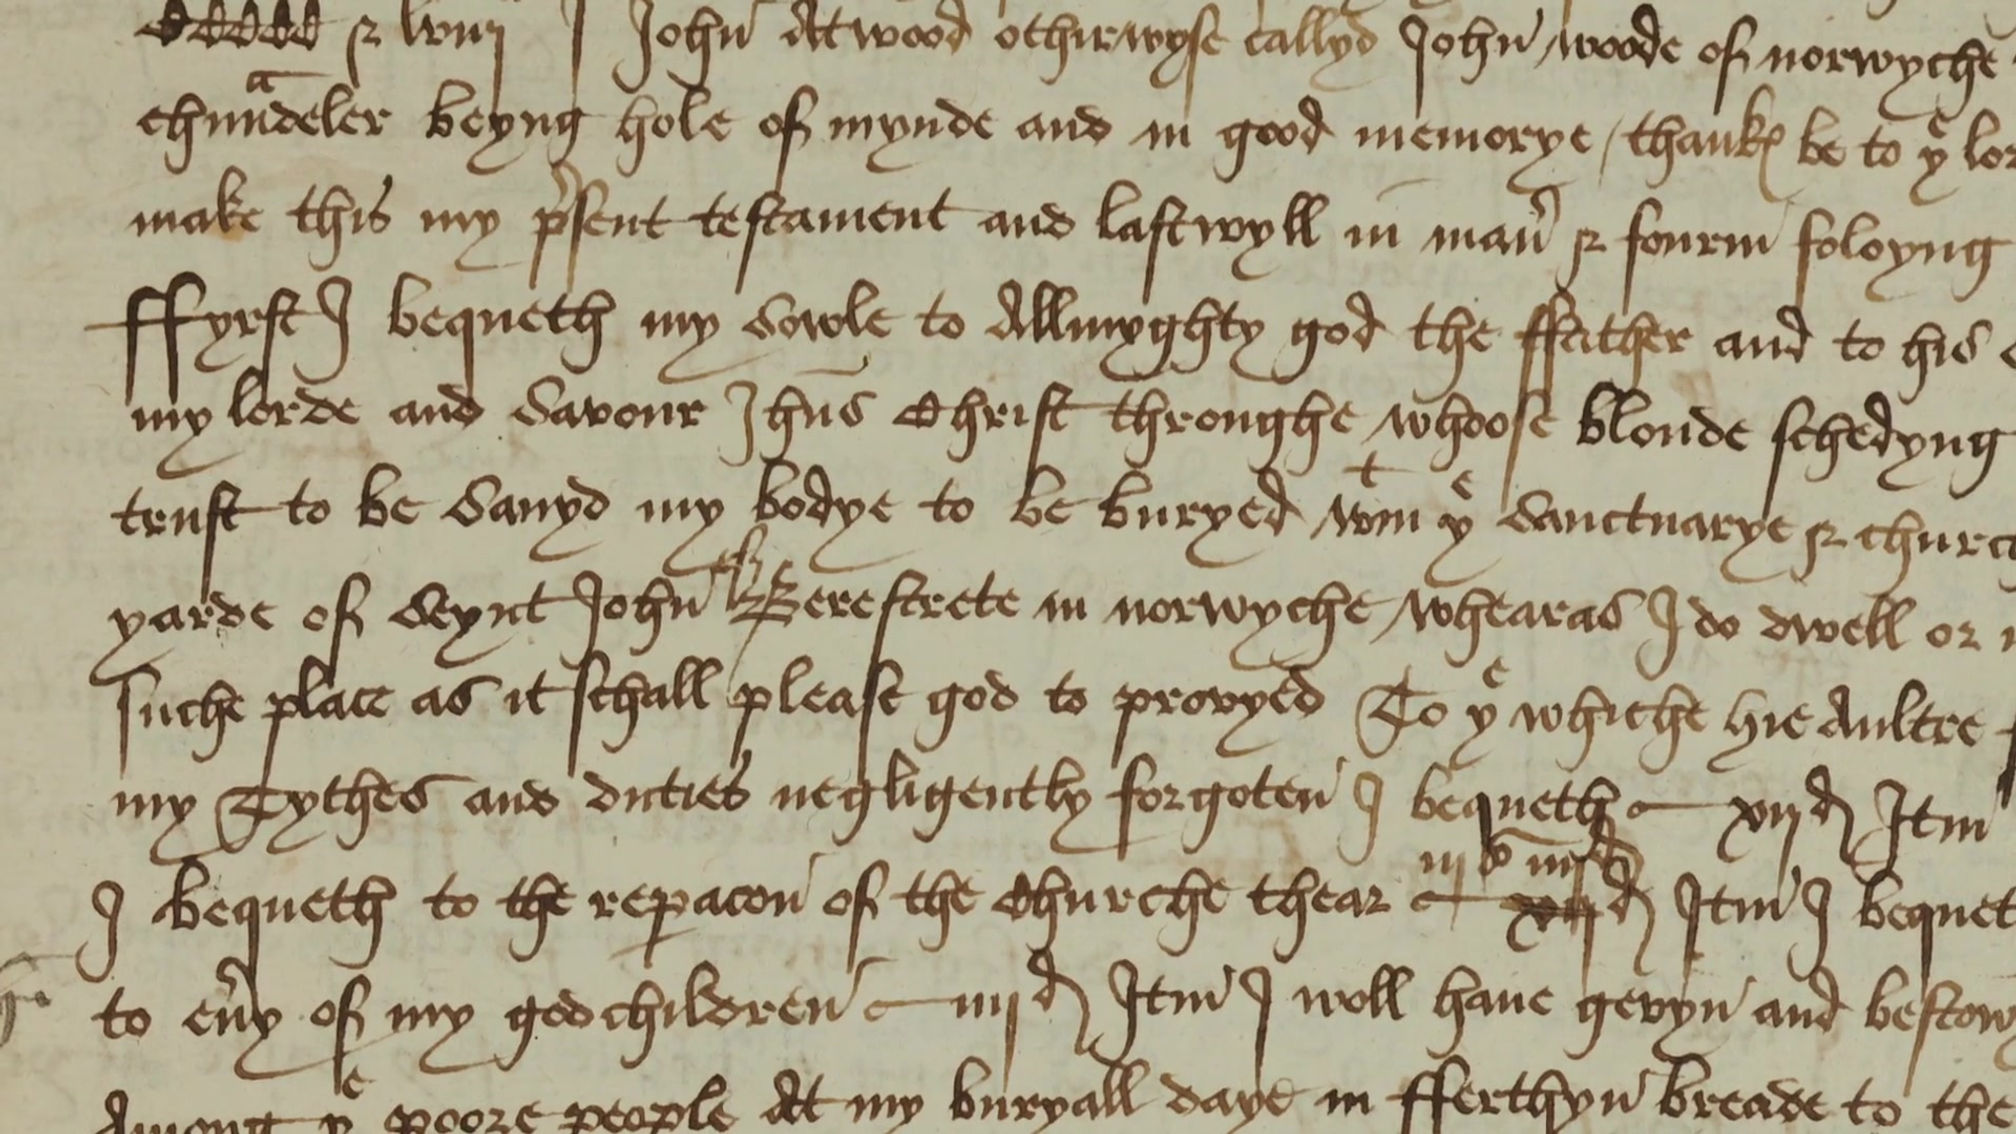 CCCCC & lviij I John Atwood othirwyse callyd John woode of norwyche
chaundeler beyng hole of mynde and in good memorye / thankℓ be to yᵉ lor
make this my p̃sent testament and last wyll in man̄ & fourm foloyng
ffyrst I bequeth my sowle to Allmyghty god the ffather and to his
my lorde and savour Jhūs Christ throughe whoose bloude schedyng
trust to be savyd my bodye to be buryed wᵗin yᵉ sanctuarye & churc
yarde of seynt John Berestrete in norwyche / whearas I do dwell or
suche place as it schall please god to provyed To yᵉ whiche hie Aultre
my Tythes and duties negligently forgoten I bequeth xijd Itm
iijs iiijd
I bequeth to the repacon of the Churche thear Itm I bequet
to eũy of my godchildren iiijd Itm I woll have gevyn and bestow
Among yᵉ poore people At my buryall daye in fferthyn breade to the